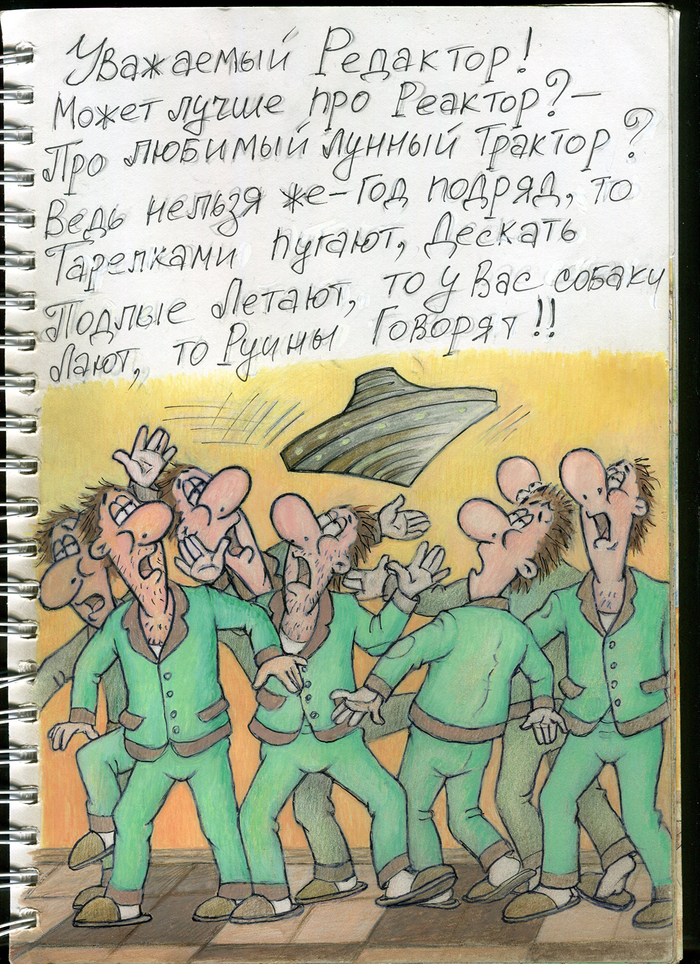 Уважаемый Редактор!
Может лучше про Реактор?-
Про любимый лунный Трактор?
Ведь нельзя же-год подряд, то
Тарелками пугают, Дескать
Подлые Летают, то у Вас собаки
Лают, то Руины Говорят!!